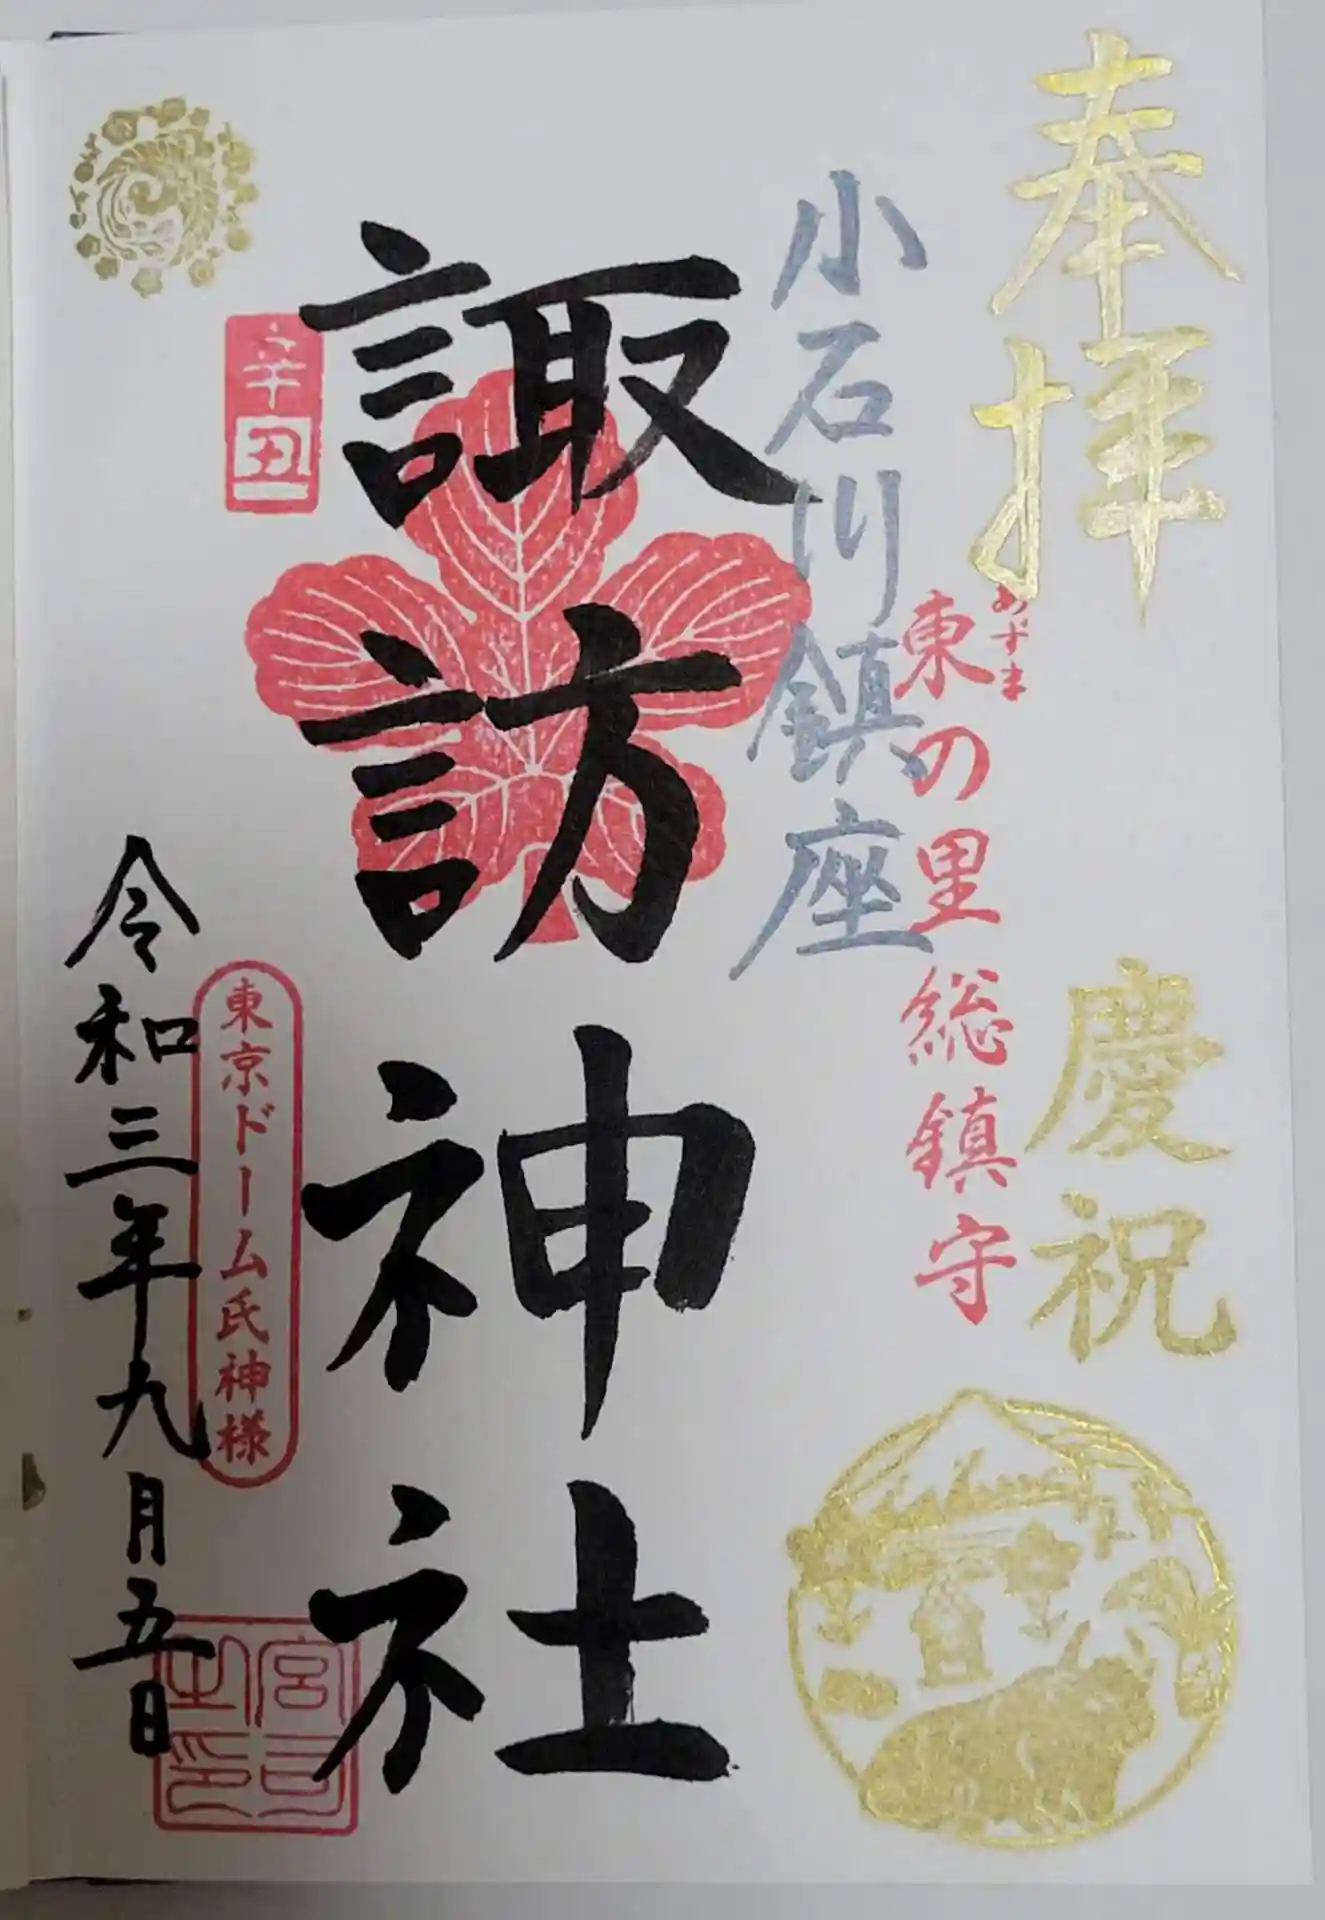 奉拝
慶祝
あずま
東の里総鎮守
小石川鎮座
諏訪神社
辛丑
東京ドーム氏神様
令和三年九月五日
宮司之印